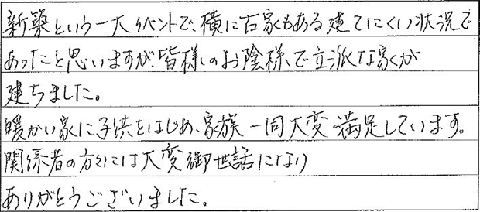 新築という一大イベントで、横に古家もある建てにくい状況で
あったことと思いますが、皆様のお陰様で立派な家が
建ちました。
暖かい家に子供をはじめ、家族一同大変満足しています。
関係者の方々には大変御世話になり
ありがとうございました。